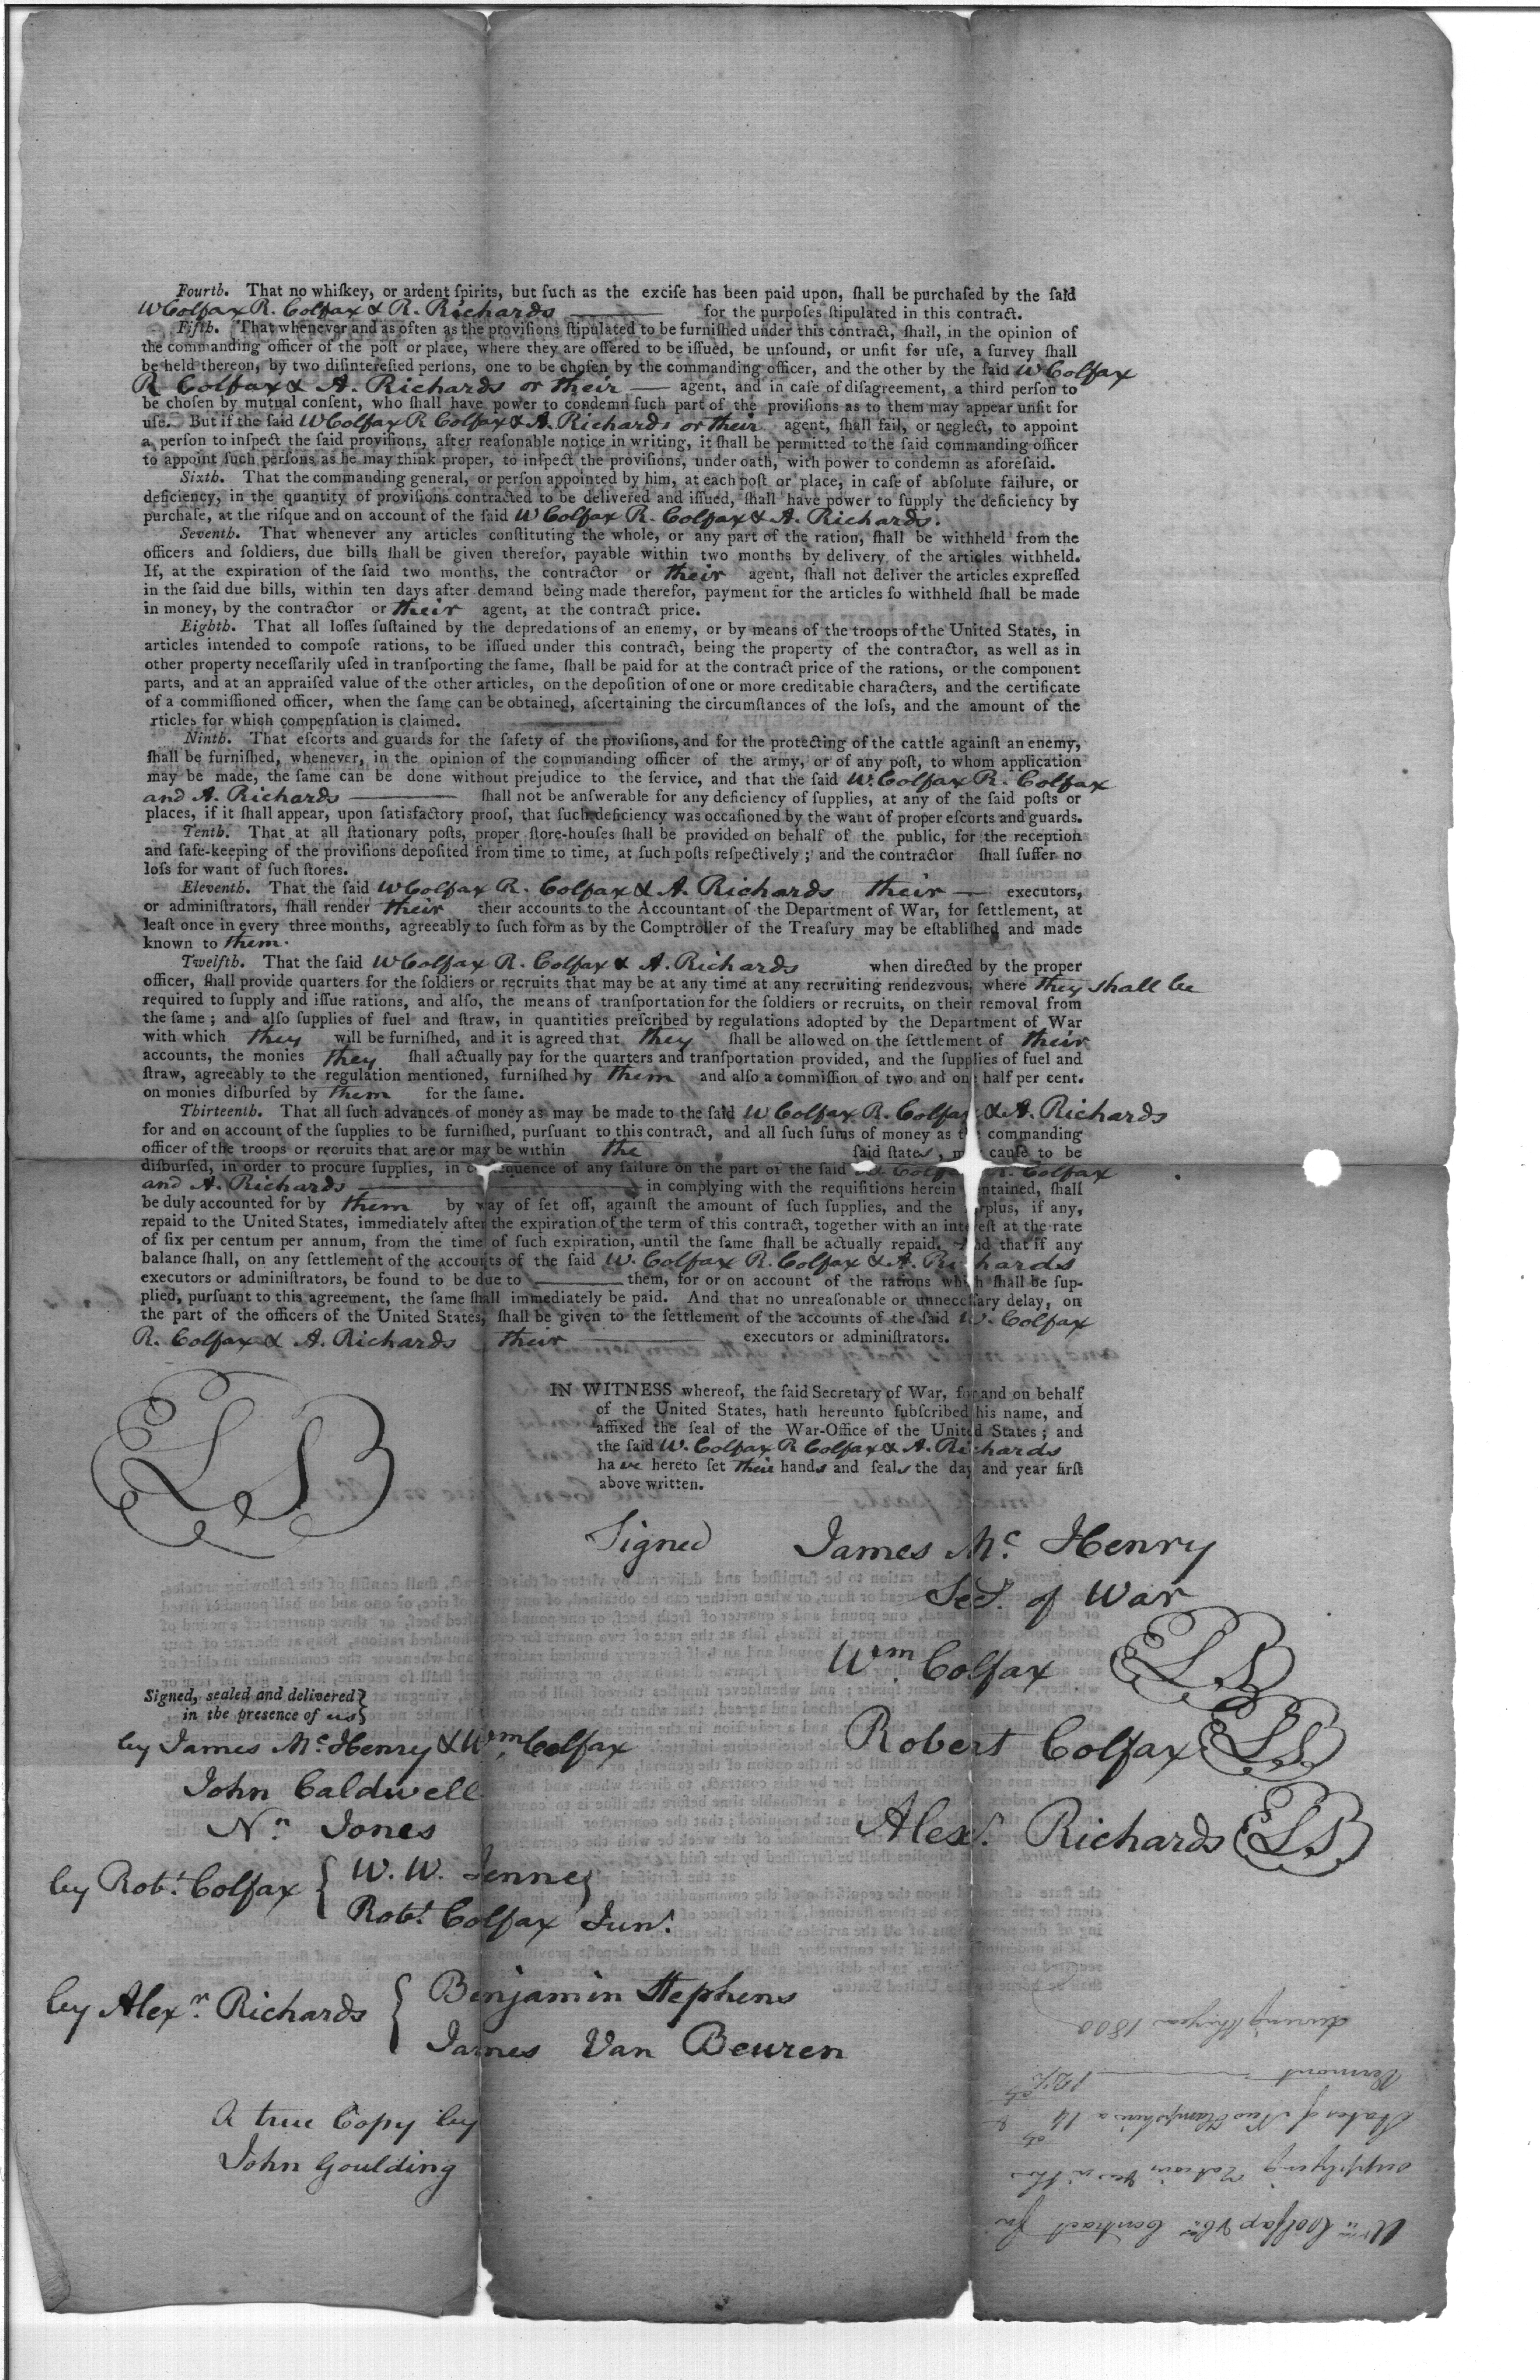 Fourth. That no whiſkey, or ardent ſpirits, but ſuch as the exciſe has been paid upon, ſhall be purchaſed by the ſaid
W Colfax R. Colfax & R. Richards for the purpoſes ſtipulated in this contract.
Fifth. That whenever and as often as the proviſions ſtipulated to be furniſhed under this contract, ſhall, in the opinion of
the commanding officer of the poſt or place, where they are offered to be iſſued, be unſound, or unfit for uſe, a ſurvey ſhall
be held thereon, by two diſintereſted perſons, one to be choſen by the commanding officer, and the other by the ſaid W Colfax
R Colfax & A. Richards or their — agent, and in caſe of diſagreement, a third perſon to
be choſen by mutual conſent, who ſhall have power to condemn ſuch part of the proviſions as to them may appear unfit for
uſe. But if the ſaid W Colfax R Colfax & A. Richards or their agent, ſhall fail, or neglect, to appoint
a perſon to inſpect the ſaid proviſions, after reaſonable notice in writing, it ſhall be permitted to the ſaid commanding officer
to appoint ſuch perſons as he may think proper, to inſpect the proviſions, under oath, with power to condemn as aforeſaid.
Sixth. That the commanding general, or perſon appointed by him, at each poſt or place, in caſe of abſolute failure, or
deficiency, in the quantity of proviſions contracted to be delivered and iſſued, ſhall have power to ſupply the deficiency by
purchaſe, at the riſque and on account of the ſaid W Colfax R. Colfax & A. Richards.
Seventh. That whenever any articles conſtituting the whole, or any part of the ration, ſhall be withheld from the
officers and ſoldiers, due bills ſhall be given therefor, payable within two months by delivery of the articles withheld.
If, at the expiration of the ſaid two months, the contractor or their agent, ſhall not deliver the articles expreſſed
in the ſaid due bills, within ten days after demand being made therefor, payment for the articles ſo withheld ſhall be made
in money, by the contractor or their agent, at the contract price.
Eighth. That all loſſes ſuſtained by the depredations of an enemy, or by means of the troops of the United States, in
articles intended to compoſe rations, to be iſſued under this contract, being the property of the contractor, as well as in
other property neceſſarily uſed in tranſporting the ſame, ſhall be paid for at the contract price of the rations, or the component
parts, and at an appraiſed value of the other articles, on the depoſition of one or more creditable characters, and the certificate
of a commiſſioned officer, when the ſame can be obtained, aſcertaining the circumſtances of the loſs, and the amount of the
rticles for which compenſation is claimed.
Ninth. That eſcorts and guards for the ſafety of the proviſions, and for the protecting of the cattle againſt an enemy,
ſhall be furniſhed, whenever, in the opinion of the commanding officer of the army, or of any poſt, to whom application
may be made, the ſame can be done without prejudice to the ſervice, and that the ſaid W. Colfax R. Colfax
and A. Richards ——— ſhall not be anſwerable for any deficiency of ſupplies, at any of the ſaid poſts or
places, if it ſhall appear, upon ſatisfactory proof, that ſuch deficiency was occaſioned by the want of proper eſcorts and guards.
Tenth. That at all ſtationary poſts, proper ſtore-houſes ſhall be provided on behalf of the public, for the reception
and ſafe-keeping of the proviſions depoſited from time to time, at ſuch poſts reſpectively; and the contractor ſhall ſuffer no
loſs for want of ſuch ſtores.
Eleventh. That the ſaid W Colfax R. Colfax & A. Richards their — executors,
or adminiſtrators, ſhall render their their accounts to the Accountant of the Department of War, for ſettlement, at
leaſt once in every three months, agreeably to ſuch form as by the Comptroller of the Treaſury may be eſtabliſhed and made
known to them.
Twelfth. That the ſaid W Colfax R. Colfax & A. Richards when directed by the proper
officer, ſhall provide quarters for the ſoldiers or recruits that may be at any time at any recruiting rendezvous, where they shall be
required to ſupply and iſſue rations, and alſo, the means of tranſportation for the ſoldiers or recruits, on their removal from
the ſame; and alſo ſupplies of fuel and ſtraw, in quantities preſcribed by regulations adopted by the Department of War
with which they will be furniſhed, and it is agreed that they ſhall be allowed on the ſettlement of their
accounts, the monies they ſhall actually pay for the quarters and tranſportation provided, and the ſupplies of fuel and
ſtraw, agreeably to the regulation mentioned, furniſhed by them and alſo a commiſſion of two and one half per cent.
on monies diſburſed by them for the ſame.
Thirteenth. That all ſuch advances of money as may be made to the ſaid W Colfax R. Colfax & A. Richards
for and on account of the ſupplies to be furniſhed, purſuant to this contract, and all ſuch ſums of money as the commanding
officer of the troops or recruits that are or may be within the ſaid ſtates, may cauſe to be
diſburſed, in order to procure ſupplies, in conſequence of any failure on the part of the ſaid W Colfax R. Colfax
and A. Richards ——— in complying with the requiſitions herein contained, ſhall
be duly accounted for by them by way of ſet off, againſt the amount of ſuch ſupplies, and the ſurplus, if any,
repaid to the United States, immediately after the expiration of the term of this contract, together with an intereſt at the rate
of ſix per centum per annum, from the time of ſuch expiration, until the ſame ſhall be actually repaid. And that if any
balance ſhall, on any ſettlement of the accounts of the ſaid W. Colfax R. Colfax & A. Richards
executors or adminiſtrators, be found to be due to ——— them, for or on account of the rations which ſhall be ſup-
plied, purſuant to this agreement, the ſame ſhall immediately be paid. And that no unreaſonable or unneceſſary delay, on
the part of the officers of the United States, ſhall be given to the ſettlement of the accounts of the ſaid W. Colfax
R. Colfax & A. Richards their ——— executors or adminiſtrators.
IN WITNESS whereof, the ſaid Secretary of War, for and on behalf
of the United States, hath hereunto ſubſcribed his name, and
affixed the ſeal of the War-Office of the United States; and
the ſaid W. Colfax R Colfax & A. Richards
have hereto ſet their hands and ſeals the day and year firſt
above written.
LS
Signed James Mc. Henry
Sec. of War
Wm. Colfax LS
Robert Colfax LS
Alexr. Richards LS
Signed, sealed and delivered }
in the presence of us }
by James Mc Henry & Wm. Colfax
John Caldwell
Nn. Jones
by Robt. Colfax { W. W. Jenne
Robt. Colfax Junr.
by Alexr. Richards { Benjamin Stephens
James Van Beuren
A true Copy by
John Goulding
Wm Colfax & Co. Contract for
supplying Rations in the
States of New Hampshire a 14
Vermont
during the year 1800